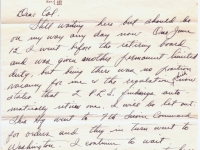 Dear Col.
Still waiting here but should be
on my way any day now. On June
12 I went before the retiring board
and was given another permanent limited
duty, but being there was no position
vacancy for me & the regulation
states that 2 P.L.S. findings auto-
matically retire one. I will be let out
this
for orders and they in turn went to
Washington. I continue to wait